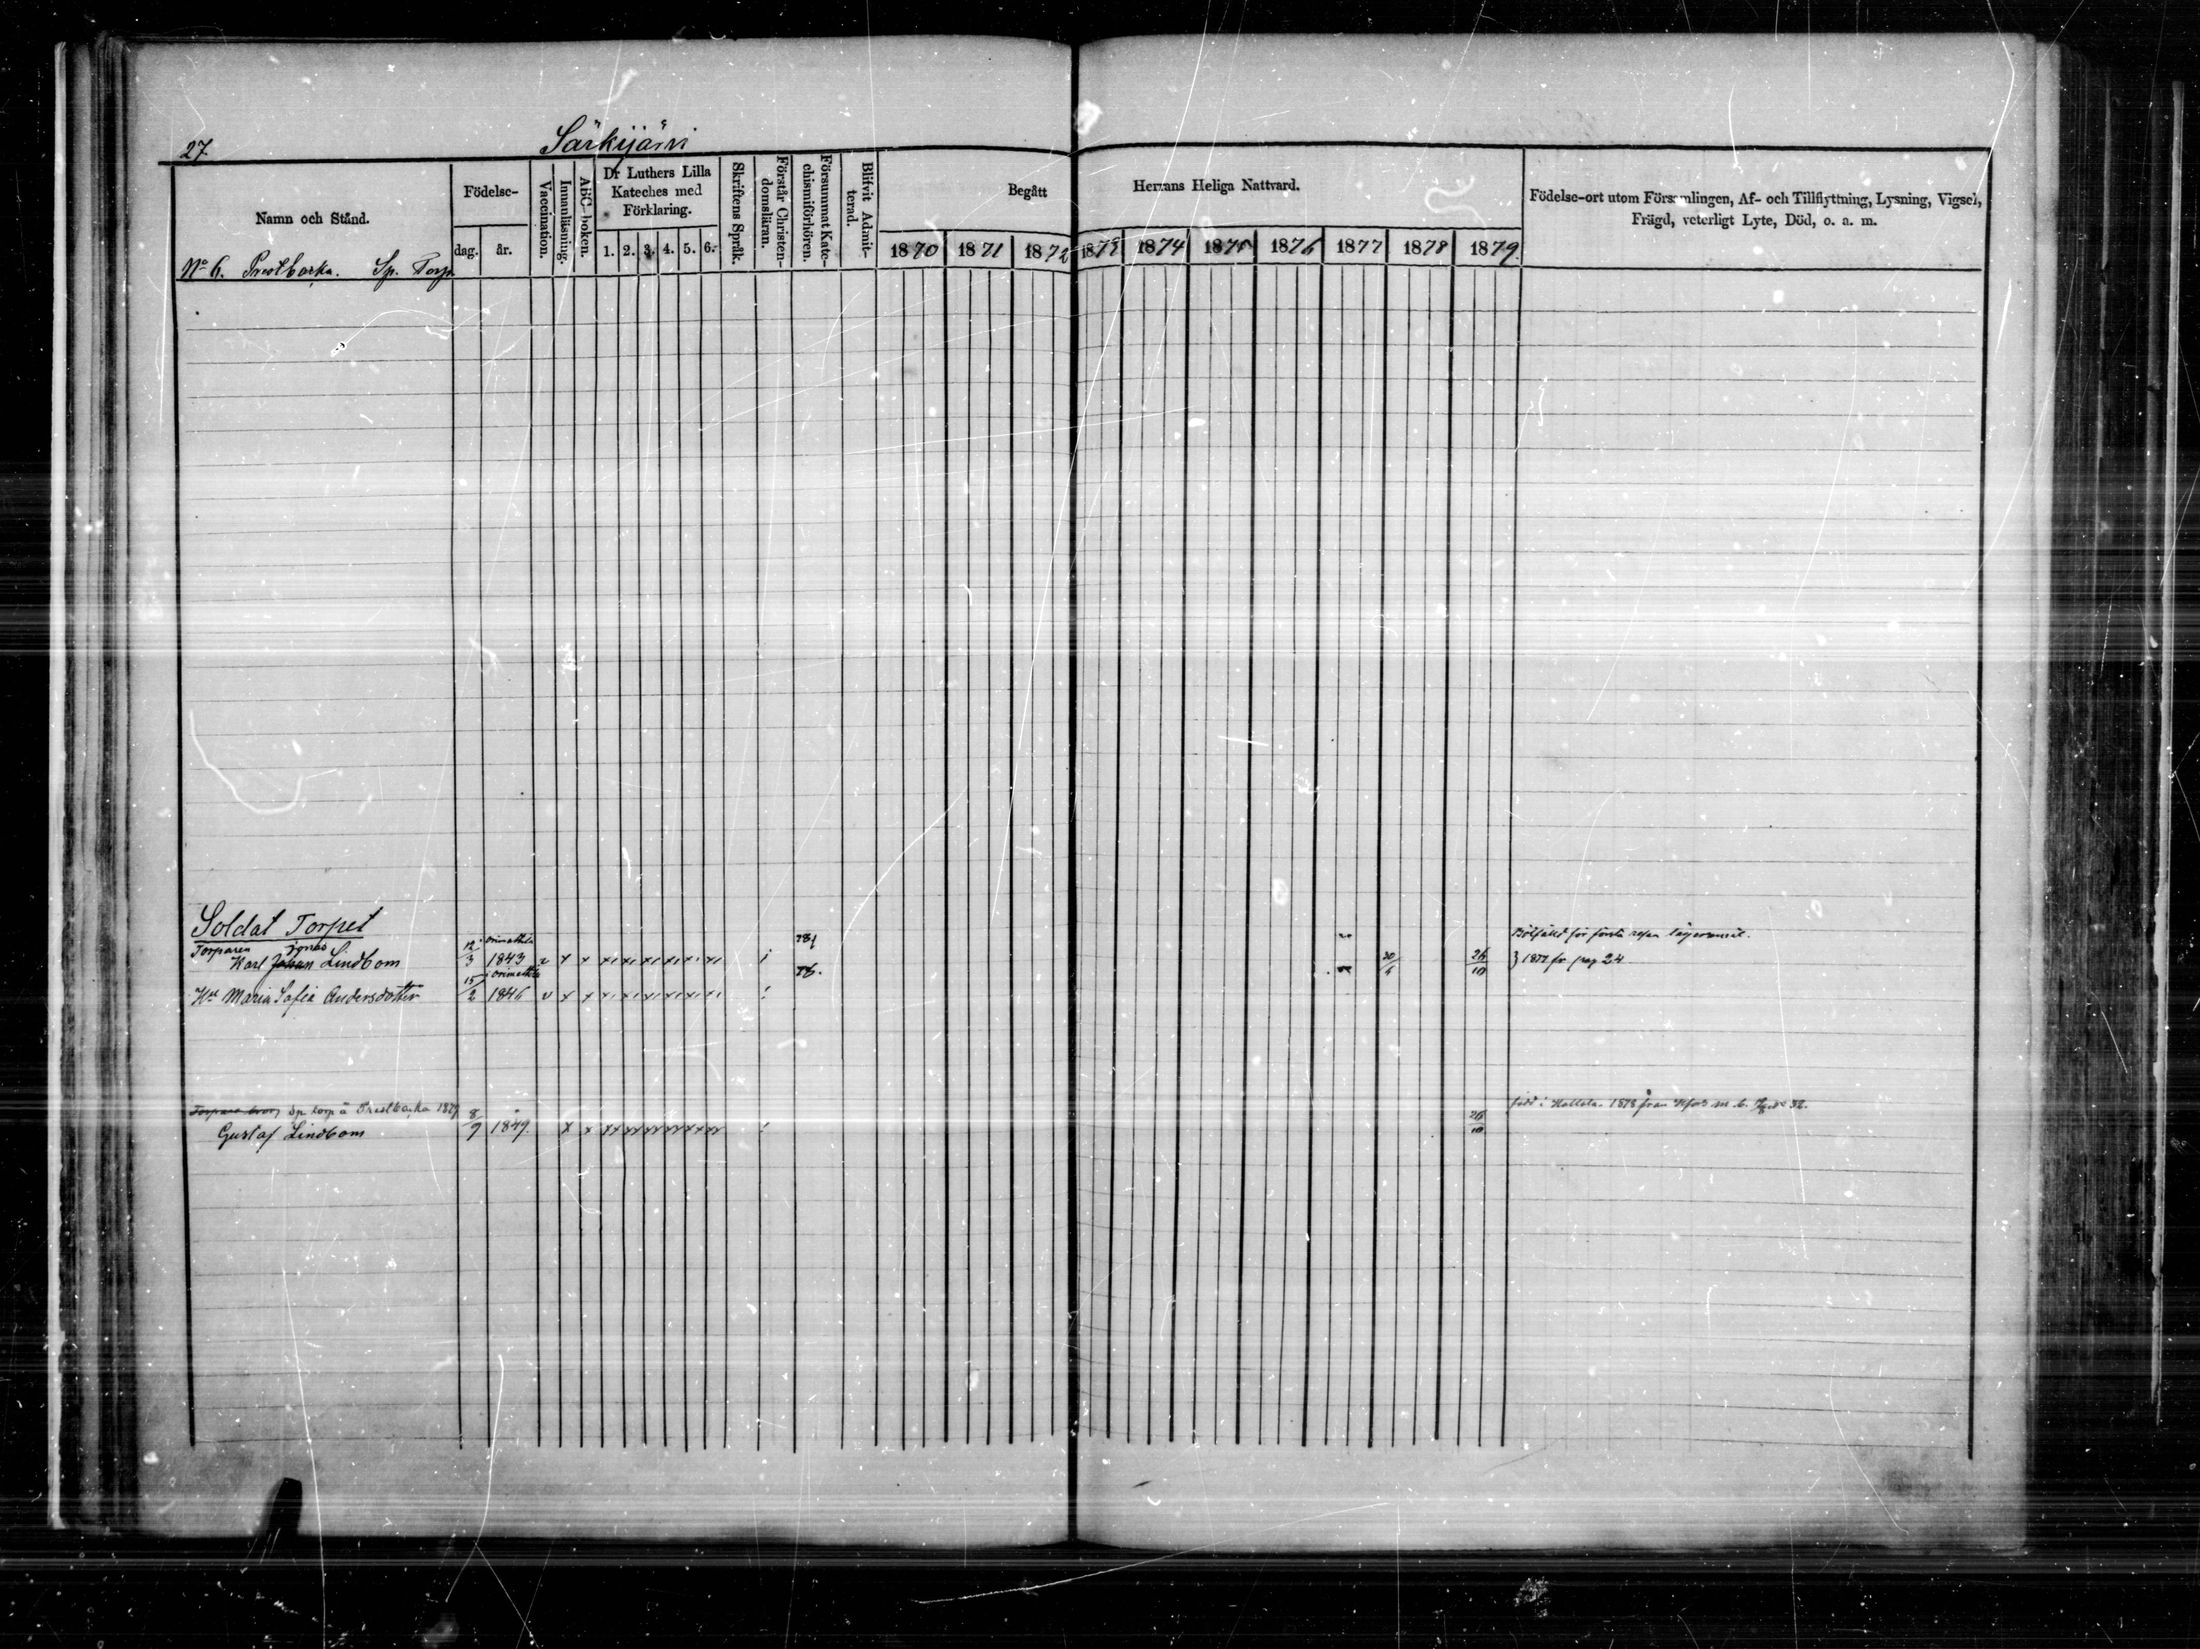 27.
Särkijärvi
Namn och Stånd.
Födelse-
dag.
år.
Vaccination.
Innanläsning.
ABC-boken.
Dr Luthers Lilla
Kateches med
Förklaring.
1. 2. 3. 4. 5. 6.
Skriftens Språk.
Förstår Christen-
domsläran.
Försummat Kate-
chismiförhören.
Blifvit Admit-
terad.
Begått
Herrans Heliga Nattvard.
1870 1871 1872 1873 1874 1875 1876 1877 1878 1879.
Födelse-ort utom Församlingen, Af- och Tillflyttning, Lysning, Vigsel,
Frägd, veterligt Lyte, Död, o. a. m.
No 6. Prestbacka. Sp. Torp.
Soldat Torpet
Torparen jonas orimattila
Karl Johan Lindbom 12/3 1843 v x x x x x x x x
för första resan
1877 fr pag 24
20/4 26/10
i orimattila
Hu Maria Sofia Andersdotter 15/2 1846 v x x x x x x x x
Sp torp å Prestbacka 1879
född i Hollola. 1878 från m. b. 32.
Gustaf Lindbom 8/9 1849. x x xx xx xx xx xx xx 26/10